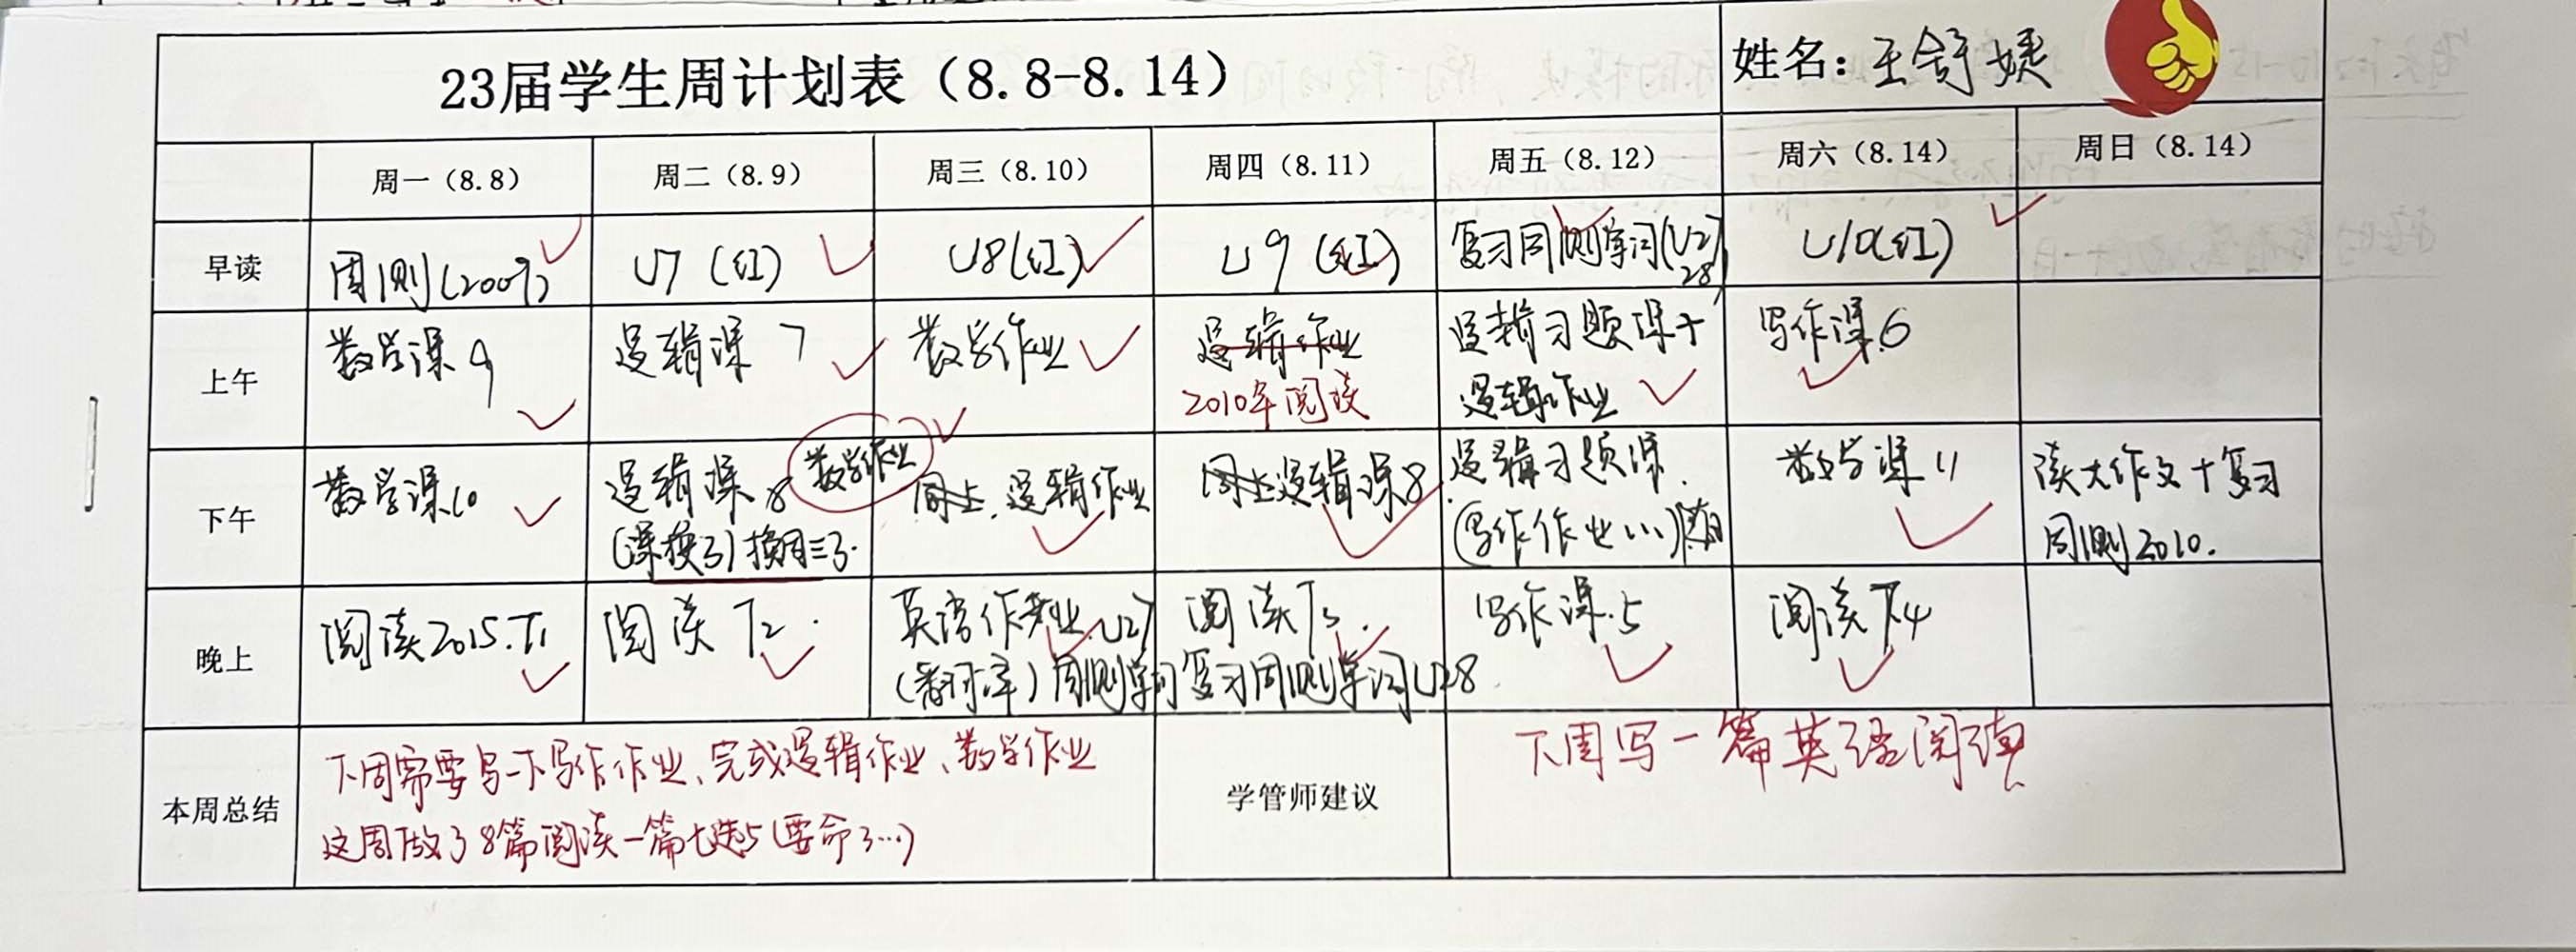 23届学生周计划表（8.8-8.14）
姓名：王舒媖
周一（8.8） 周二（8.9） 周三（8.10） 周四（8.11） 周五（8.12） 周六（8.14） 周日（8.14）
早读
周测(2009)
U7 (红)
U8(红)
U9 (红)
复习周测单词(U27
28)
U10(红)
上午
数学课9
逻辑课 7
数学作业
逻辑作业
2010年阅读
逻辑习题课+
逻辑作业
写作课6
下午
数学课10
逻辑课8
(课换了)换周三了.
数学作业
同上.逻辑作业
同上逻辑课8
逻辑习题课.
(写作作业...)
数学课11
读大作文+复习
周测2010.
晚上
阅读2015.T1
阅读 T2.
英语作业.U27
(翻译)周测单词
阅读T3.
复习周测单词U28
写作课.5
阅读T4
本周总结
下周需要写一下写作作业、完成逻辑作业、数学作业
这周做了8篇阅读一篇七选5(要命了...)
学管师建议
下周写一篇英语阅读